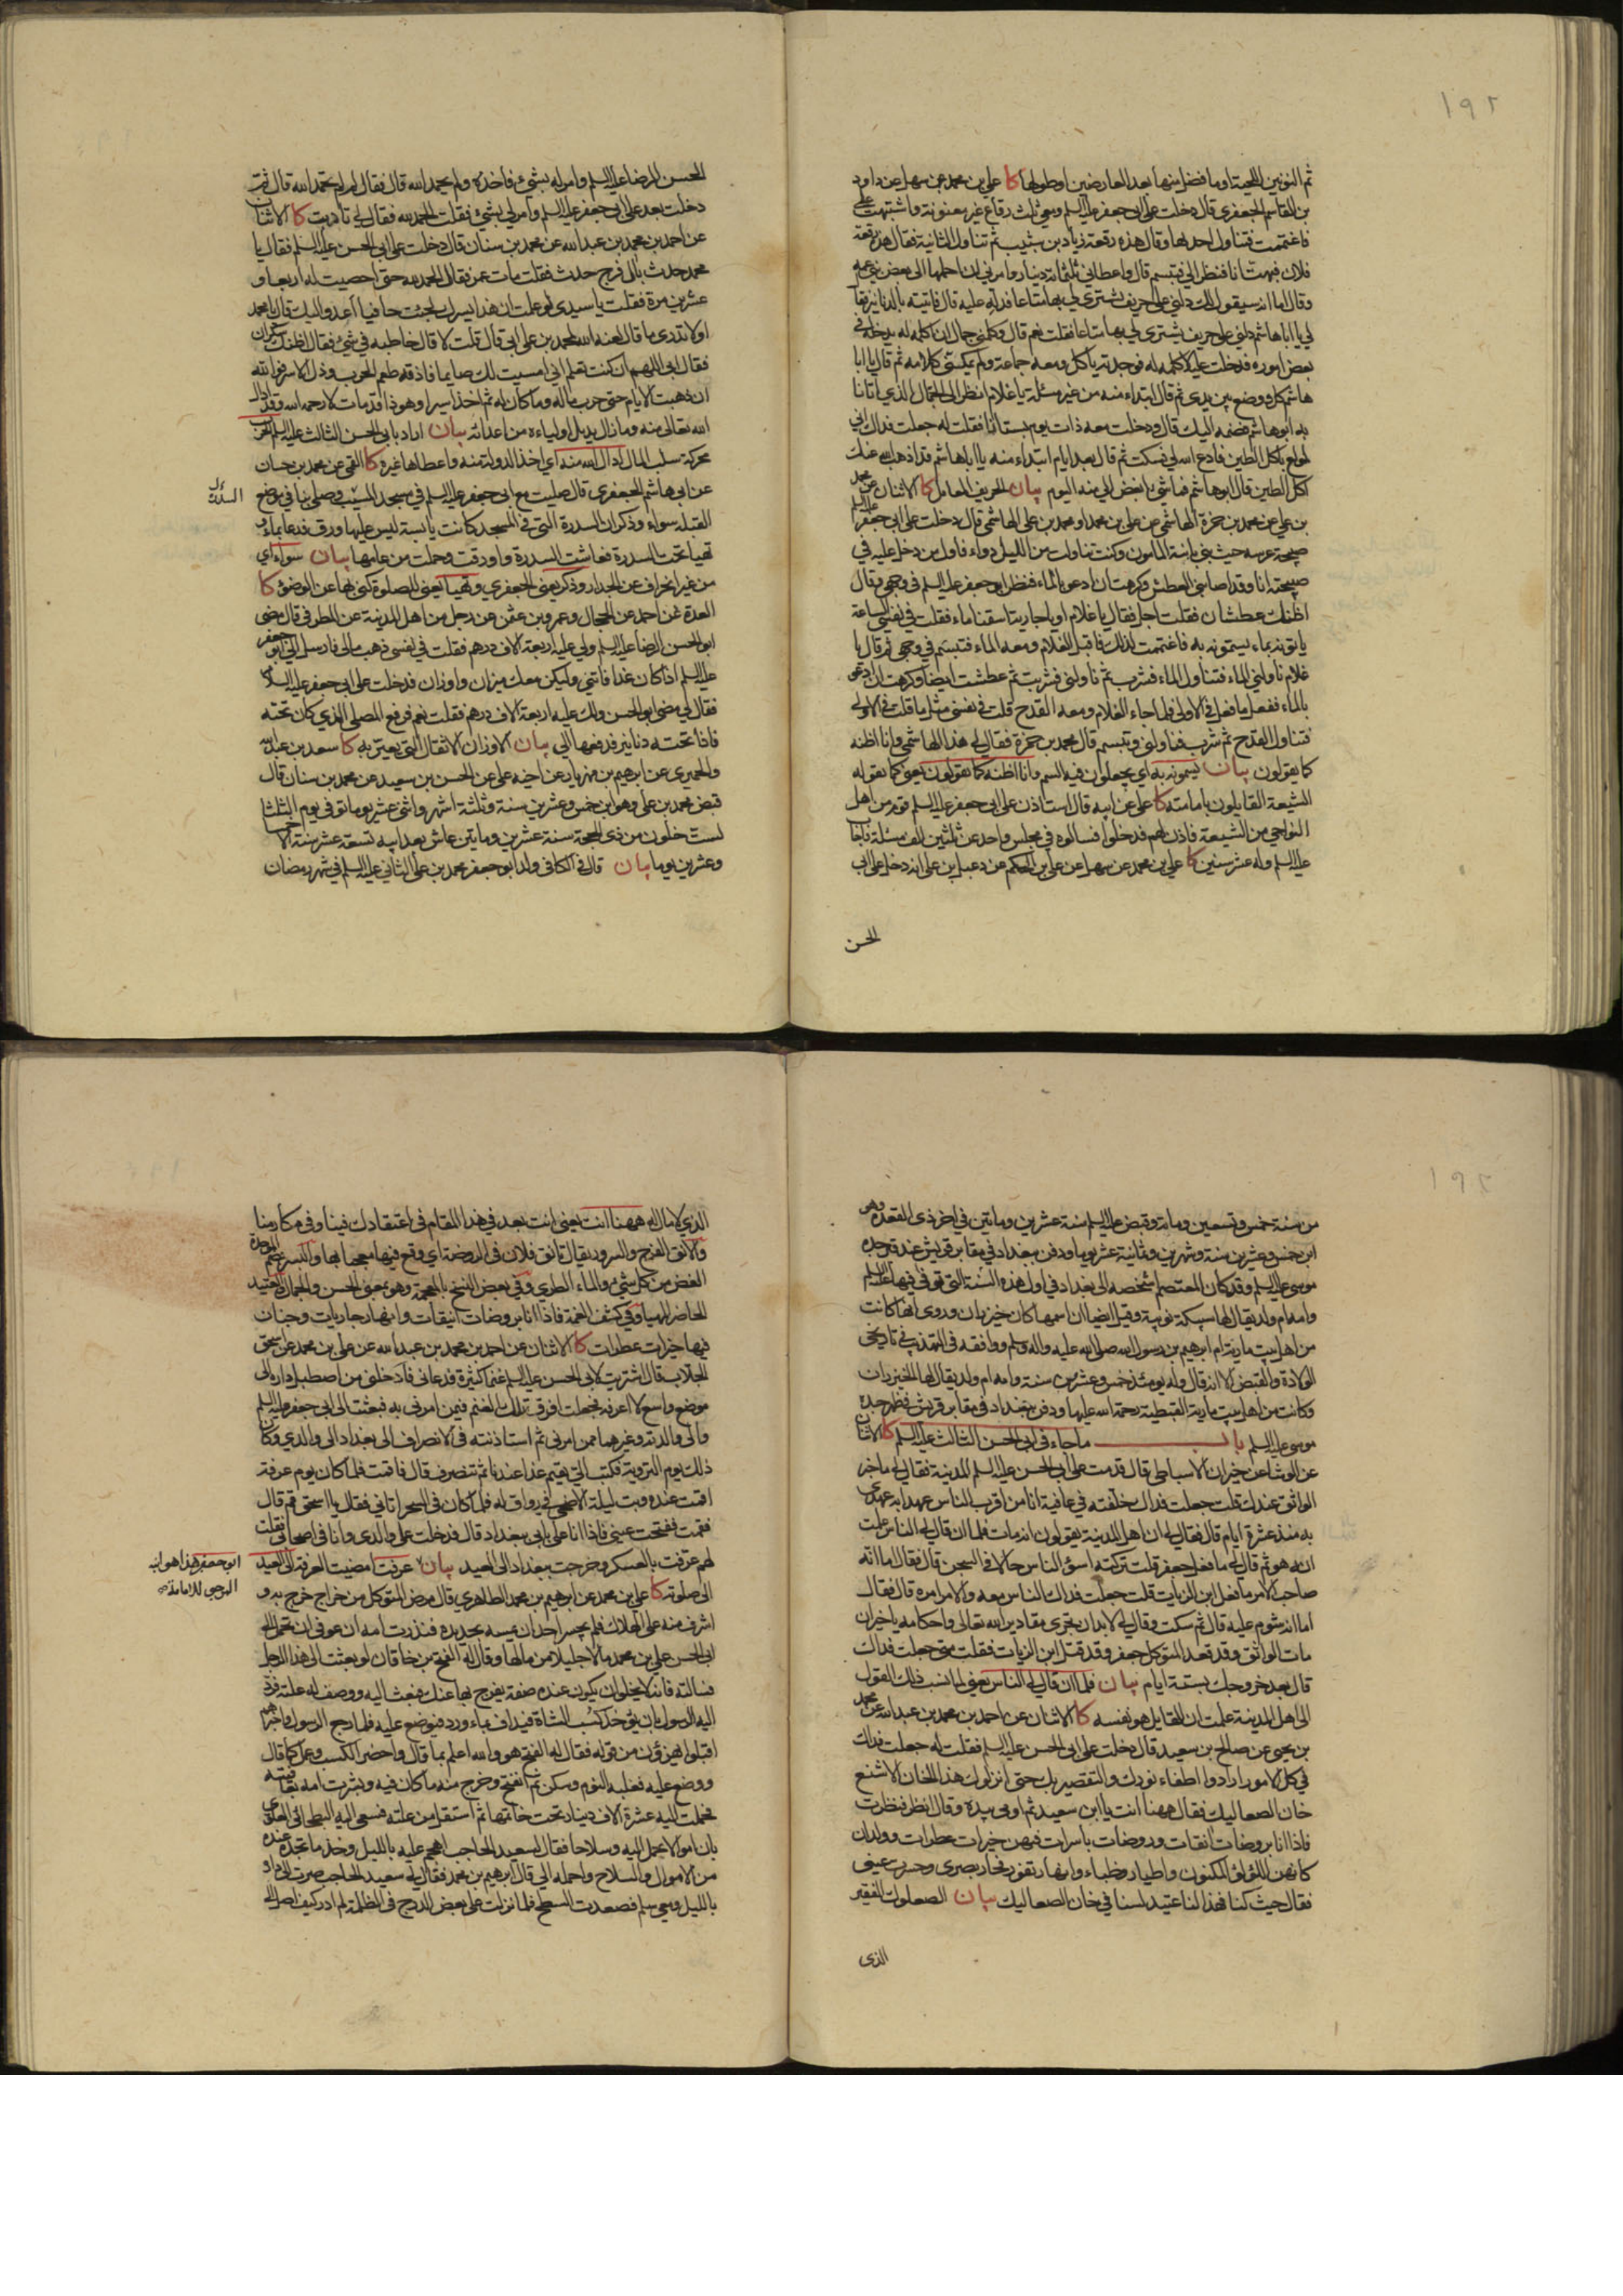 ١٩٢
ثم النونين اللحية او ما فضل منها بعد العارضين او طولها كا علي بن محمد عن سهل عن داود
بن القاسم الجعفري قال دخلت على ابي جعفر عليه السلم ومعي ثلث رقاع غير معنونة واشتبهت علي
فاغتممت فتناول احدها وقال هذه رقعة زياد بن شبيب ثم تناول الثانية فقال هذه رقعة
فلان فبهت انا فنظر الي فتبسم قال واعطاني ثلثمائة دينار وامرني ان احملها الى بعض بني عمه
وقال اما انه سيقول لك دلني على حريف يشتري لي بها متاعا فدله عليه قال فاتيته بالدنانير فقال
لي يا ابا هاشم دلني على حريف يشتري لي بها متاعا فقلت نعم قال وكلمني جمال ان اكلمه له يدخله في
بعض اموره فدخلت عليه لاكلمه له فوجدته ياكل ومعه جماعة ولم يمكنني كلامه ثم قال يا ابا
هاشم كل ووضع بين يدي ثم قال ابتداء منه من غير مسئلة يا غلام انظر الى الجمال الذي اتانا
به ابو هاشم فضمه اليك قال ودخلت معه ذات يوم بستانا فقلت له جعلت فداك اني
لمولع باكل الطين فادع الله لي فسكت ثم قال بعد ايام ابتداء منه يا ابا هاشم قد اذهب الله عنك
اكل الطين قال ابو هاشم فما شيء ابغض الي منه اليوم بيان الحريف المعامل كا الاثنان عن محمد
بن علي عن محمد بن حمزة الهاشمي عن علي بن محمد او محمد بن علي الهاشمي قال دخلت على ابي جعفر عليه السلم
صبيحة عرسه حيث بنى بابنة المامون وكنت تناولت من الليل دواء فاول من دخل عليه في
صبيحته انا وقد اصابني العطش وكرهت ان ادعو بالماء فنظر ابو جعفر عليه السلم في وجهي وقال
اظنك عطشان فقلت اجل فقال يا غلام او يا جارية اسقنا ماء فقلت في نفسي الساعة
ياتونه بماء يسمونه به فاغتممت لذلك فاقبل الغلام ومعه الماء فتبسم في وجهي ثم قال يا
غلام ناولني الماء فتناول الماء فشرب ثم ناولني فشربت ثم عطشت ايضا وكرهت ان ادعو
بالماء ففعل ما فعل في الاولى فلما جاء الغلام ومعه القدح قلت في نفسي مثل ما قلت في الاولى
فتناول القدح ثم شرب فناولني وتبسم قال محمد بن حمزة فقال لي هذا الهاشمي وانا اظنه
كما يقولون بيان يسمونه به اي يجعلون فيه السم وانا اظنه كما يقولون يعني كما يقوله
الشيعة القايلون بامامته كا علي عن ابيه قال استاذن على ابي جعفر عليه السلم قوم من اهل
النواحي من الشيعة فاذن لهم فدخلوا فسالوه في مجلس واحد عن ثلثين الف مسئلة فاجاب
عليه السلم وله عشر سنين كا علي بن محمد عن سهل عن علي بن الحكم عن دعبل بن علي انه دخل على ابي
الحسن
الحسن الرضا عليه السلم وامر له بشيء فاخذه ولم يحمد الله قال فقال له لم لم تحمد الله قال ثم
دخلت بعد على ابي جعفر عليه السلم وامر لي بشيء فقلت الحمد لله فقال لي تأدبت كا الاثنان
عن احمد بن محمد بن عبد الله عن محمد بن سنان قال دخلت على ابي الحسن عليه السلم فقال يا
محمد حدث بآل فرج حدث فقلت مات عمر فقال الحمد لله حتى احصيت له اربعا و
عشرين مرة فقلت يا سيدي لو علمت ان هذا يسرك لجئت حافيا اعدو اليك قال يا محمد
اولا تدري ما قال لعنه الله لمحمد بن علي ابي قال قلت لا قال خاطبه في شيء فقال اظنك سكران
فقال ابي اللهم ان كنت تعلم اني امسيت لك صايما فاذقه طعم الحرب وذل الاسر فوالله
ان ذهبت الايام حتى حرب ماله وما كان له ثم اخذ اسيرا وهوذا قد مات لا رحمه الله وقد ادال
الله تعالى منه وما زال يديل اولياءه من اعدائه بيان اراد بابي الحسن الثالث عليه السلم الحرب
محركة سلب المال ادال الله منه اي اخذ الدولة منه واعطاها غيره كا القمي عن محمد بن حسان
عن ابي هاشم الجعفري قال صليت مع ابي جعفر عليه السلم في مسجد المسيب وصلى بنا في موضع
القبلة سواء وذكر ان السدرة التي في المسجد كانت يابسة ليس عليها ورق فدعا بماء و
تهيا تحت السدرة فعاشت السدرة واورقت وحملت من عامها بيان سواء اي
من غير انحراف عن الجدار وذكر يعني الجعفري وتهيا يعني للصلوة كنى بها عن الوضوء كا
العدة عن احمد عن الحجال وعمرو بن عثمن عن رجل من اهل المدينة عن المطرفي قال مضى
ابو الحسن الرضا عليه السلم ولي عليه اربعة الاف درهم فقلت في نفسي ذهب مالي فارسل الي ابو جعفر
عليه السلم اذا كان غدا فاتني وليكن معك ميزان واوزان فدخلت على ابي جعفر عليه السلم
فقال لي مضى ابو الحسن ولك عليه اربعة الاف درهم فقلت نعم فرفع المصلى الذي كان تحته
فاذا تحته دنانير فدفعها الي بيان الاوزان الاثقال التي يعتبر به كا سعد بن عبد الله
والحميري عن ابرهيم بن مهزيار عن اخيه علي عن الحسن بن سعيد عن محمد بن سنان قال
قبض محمد بن علي وهو ابن خمس وعشرين سنة وثلثة اشهر واثني عشر يوما توفي يوم الثلثا
لست خلون من ذي الحجة سنة عشرين وماتين عاش بعد ابيه تسعة عشر سنة الا خمسا
وعشرين يوما بيان قال في الكافي ولد ابو جعفر محمد بن علي الثاني عليه السلم في شهر رمضان
١٩٢
من سنة خمس وتسعين ومائة وقبض عليه السلم سنة عشرين وماتين في اخر ذي القعدة وهو
ابن خمس وعشرين سنة وشهرين وثمانية عشر يوما ودفن ببغداد في مقابر قريش عند قبر جده
موسى عليه السلم وقد كان المعتصم اشخصه الى بغداد في اول هذه السنة التي توفي فيها عليه السلم
وامه ام ولد يقال لها سبيكة نوبية وقيل ايضا ان اسمها كان خيزران وروي انها كانت
من اهل بيت مارية ام ابرهيم بن رسول الله صلى الله عليه واله وسلم ووافقه في التهذيب في تاريخي
الولادة والقبض الا انه قال وله يومئذ خمس وعشرين سنة وامه ام ولد يقال لها الخيزران
وكانت من اهل بيت مارية القبطية رحمة الله عليها ودفن ببغداد في مقابر قريش في ظهر جده
موسى عليه السلم باب ما جاء في ابي الحسن الثالث عليه السلم كا الاثنان
عن الوشاء عن خيران الاسباطي قال قدمت على ابي الحسن عليه السلم المدينة فقال لي ما خبر
الواثق عندك قلت جعلت فداك خلفته في عافية انا من اقرب الناس عهدا به عهدي
به منذ عشرة ايام قال فقال لي ان اهل المدينة يقولون انه مات فلما ان قال لي الناس علمت
انه هو ثم قال لي ما فعل جعفر قلت تركته اسوء الناس حالا في السجن قال فقال اما انه
صاحب الامر ما فعل ابن الزيات قلت جعلت فداك الناس معه والامر امره قال فقال
اما انه شوم عليه قال ثم سكت وقال لي لا بد ان تجري مقادير الله تعالى واحكامه يا خيران
مات الواثق وقد قعد المتوكل جعفر وقد قتل ابن الزيات فقلت متى جعلت فداك
قال بعد خروجك بستة ايام بيان فلما ان قال لي الناس يعني لما نسب ذلك القول
الى اهل المدينة علمت ان القايل هو نفسه كا الاثنان عن احمد بن محمد بن عبد الله عن محمد
بن يحيى عن صالح بن سعيد قال دخلت على ابي الحسن عليه السلم فقلت له جعلت فداك
في كل الامور ارادوا اطفاء نورك والتقصير بك حتى انزلوك هذا الخان الاشنع
خان الصعاليك فقال ههنا انت يا ابن سعيد ثم اومى بيده وقال انظر فنظرت
فاذا انا بروضات انقات وروضات باسرات فيهن خيرات عطرات وولدان
كانهن اللؤلؤ المكنون واطيار وظباء وانهار تفور فحار بصري وحسرت عيني
فقال حيث كنا فهذا لنا عتيد لسنا في خان الصعاليك بيان الصعلوك الفقير
الذي
الذي لا مال له ههنا انت يعني انت بعد في هذا المقام في اعتقادك فينا وفي مكارمنا
والانق الفرح والسرور يقال تانق فلان في الروضة اي وقع فيها معجبا بها والبسر بضم الموحدة
الغض من كل شيء والماء الطري وفي بعض النسخ بالمعجمة وهو بمعنى الحسن والجمال العتيد
الحاضر المهيا وفي كشف الغمة فاذا انا بروضات انيقات وانهار جاريات وجنان
فيها خيرات عطرات كا الاثنان عن احمد بن محمد بن عبد الله عن علي بن محمد عن اسحق
الجلاب قال اشتريت لابي الحسن عليه السلم غنما كثيرة فدعاني فادخلني من اصطبل داره الى
موضع واسع لا اعرفه فجعلت افرق تلك الغنم فيمن امرني به فبعثت الى ابي جعفر عليه السلم
والى والدته وغيرهما ممن امرني ثم استاذنته في الانصراف الى بغداد الى والدي وكان
ذلك يوم التروية فكتب الي تقيم غدا عندنا ثم تنصرف قال فاقمت فلما كان يوم عرفة
اقمت عنده وبت ليلة الاضحى في رواق له فلما كان في السحر اتاني فقال يا اسحق قم قال
فقمت ففتحت عيني فاذا انا على بابي ببغداد قال فدخلت على والدي وانا في اصحابي فقلت
لهم عرفت بالعسكر وخرجت ببغداد الى العيد بيان عرفت امضيت العرفة الى العيد
الى صلوته كا علي بن محمد عن ابرهيم بن محمد الطاهري قال مرض المتوكل من خراج خرج به و
اشرف منه على الهلاك فلم يجسر احد ان يمسه بحديدة فنذرت امه ان عوفي ان تحمل الى
ابي الحسن علي بن محمد مالا جليلا من مالها وقال له الفتح بن خاقان لو بعثت الى هذا الرجل
فسالته فانه لا يخلو ان يكون عنده صفة يفرج بها عنك فبعث اليه ووصف له علته فرد
اليه الرسول بان يؤخذ كسب الشاة فيداف بماء ورد فيوضع عليه فلما رجع الرسول واخبرهم
اقبلوا يهزؤن من قوله فقال له الفتح هو والله اعلم بما قال واحضر الكسب وعمل كما قال
ووضع عليه فغلبه النوم وسكن ثم انفتح وخرج منه ما كان فيه وبشرت امه بعافيته
فحملت اليه عشرة الاف دينار تحت خاتمها ثم استقل من علته فسعى اليه البطحائي العلوي
بان اموالا تحمل اليه وسلاحا فقال لسعيد الحاجب اهجم عليه بالليل وخذ ما تجد عنده
من الاموال والسلاح واحمله الي قال ابرهيم بن محمد فقال لي سعيد الحاجب صرت الى داره
بالليل ومعي سلم فصعدت السطح فلما نزلت على بعض الدرج في الظلمة لم ادر كيف اصل الى
ابو جعفر هذا هو ابنه
المرجى للامامة